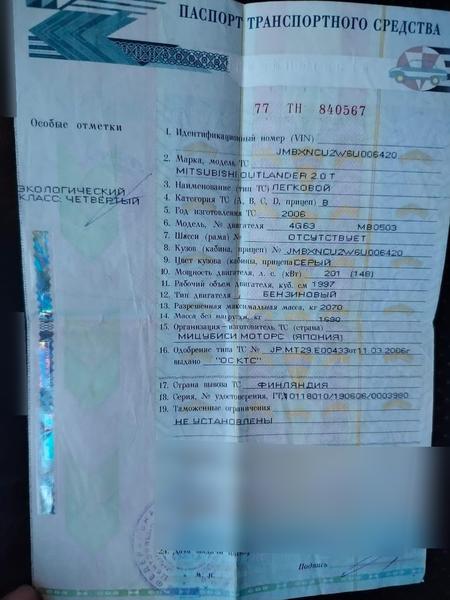 ПАСПОРТ ТРАНСПОРТНОГО СРЕДСТВА
77 ТН 840567
Особые отметки
ЭКОЛОГИЧЕСКИЙ
КЛАСС ЧЕТВЕРТЫЙ
1. Идентификационный номер (VIN)
JMBXNCU2W6U006420
2. Марка, модель ТС
MITSUBISHI OUTLANDER 2.0 T
3. Наименование (тип ТС) ЛЕГКОВОЙ
4. Категория ТС (A, B, C, D, прицеп) B
5. Год изготовления ТС 2006
6. Модель, № двигателя 4G63 MB0503
7. Шасси (рама) № ОТСУТСТВУЕТ
8. Кузов (кабина, прицеп) № JMBXNCU2W6U006420
9. Цвет кузова (кабины, прицепа) СЕРЫЙ
10. Мощность двигателя, л. с. (кВт) 201 (148)
11. Рабочий объем двигателя, куб. см 1997
12. Тип двигателя БЕНЗИНОВЫЙ
13. Разрешенная максимальная масса, кг 2070
14. Масса без нагрузки, кг
15. Организация–изготовитель ТС (страна)
МИЦУБИСИ МОТОРС (ЯПОНИЯ)
16. Одобрение типа ТС № JP.MT29.E00433 от 11.03.2006г
выдано "ОС КТС"
17. Страна вывоза ТС ФИНЛЯНДИЯ
18. Серия, № удостоверения, 10118010/190606/0003980
19. Таможенные ограничения
НЕ УСТАНОВЛЕНЫ
М. П.
Подпись